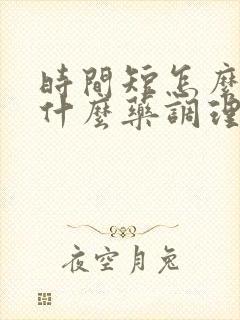 時間短怎麼
什麼藥調理
夜空月兔